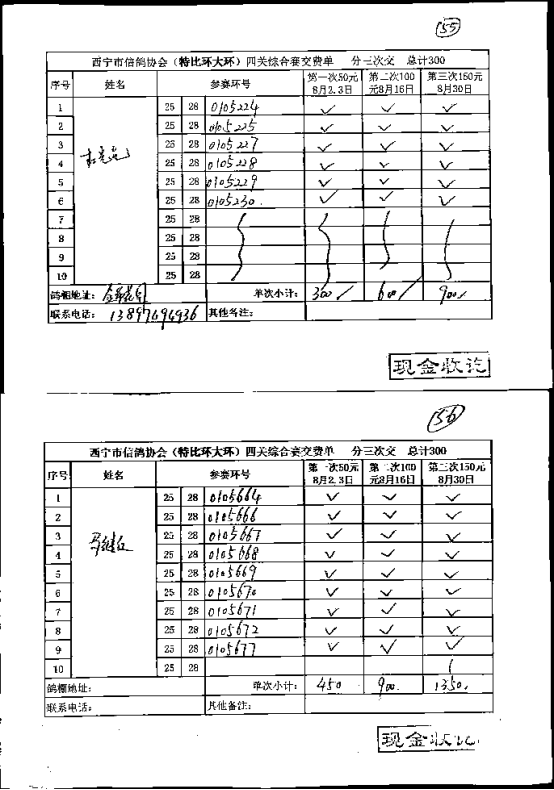 155
西宁市信鸽协会（特比环大环）四关综合赛交费单 分三次交 总计300
序号 姓名 参赛环号 第一次50元 8月2.3日 第二次100元8月16日 第三次150元 8月30日
1 25 28 0105224 ✓ ✓ ✓
2 25 28 0105225 ✓ ✓ ✓
3 25 28 0105227 ✓ ✓ ✓
4 25 28 0105228 ✓ ✓ ✓
5 25 28 0105229 ✓ ✓ ✓
6 25 28 0105230. ✓ ✓ ✓
7 25 28
8 25 28
9 25 28
10 25 28
鸽棚地址： 单次小计： 300/ 600/ 900/
联系电话： 13897494936 其他备注：
现金收讫
156
西宁市信鸽协会（特比环大环）四关综合赛交费单 分三次交 总计300
序号 姓名 参赛环号 第一次50元 8月2.3日 第二次100元8月16日 第三次150元 8月30日
1 25 28 0105664 ✓ ✓ ✓
2 25 28 0105666 ✓ ✓ ✓
3 马继红 25 28 0105667 ✓ ✓ ✓
4 25 28 0105668 ✓ ✓ ✓
5 25 28 0105669 ✓ ✓ ✓
6 25 28 0105670 ✓ ✓ ✓
7 25 28 0105671 ✓ ✓ ✓
8 25 28 0105672 ✓ ✓ ✓
9 25 28 0105677 ✓ ✓ ✓
10 25 28
鸽棚地址： 单次小计： 450 900. 1350.
联系电话： 其他备注：
现金收讫